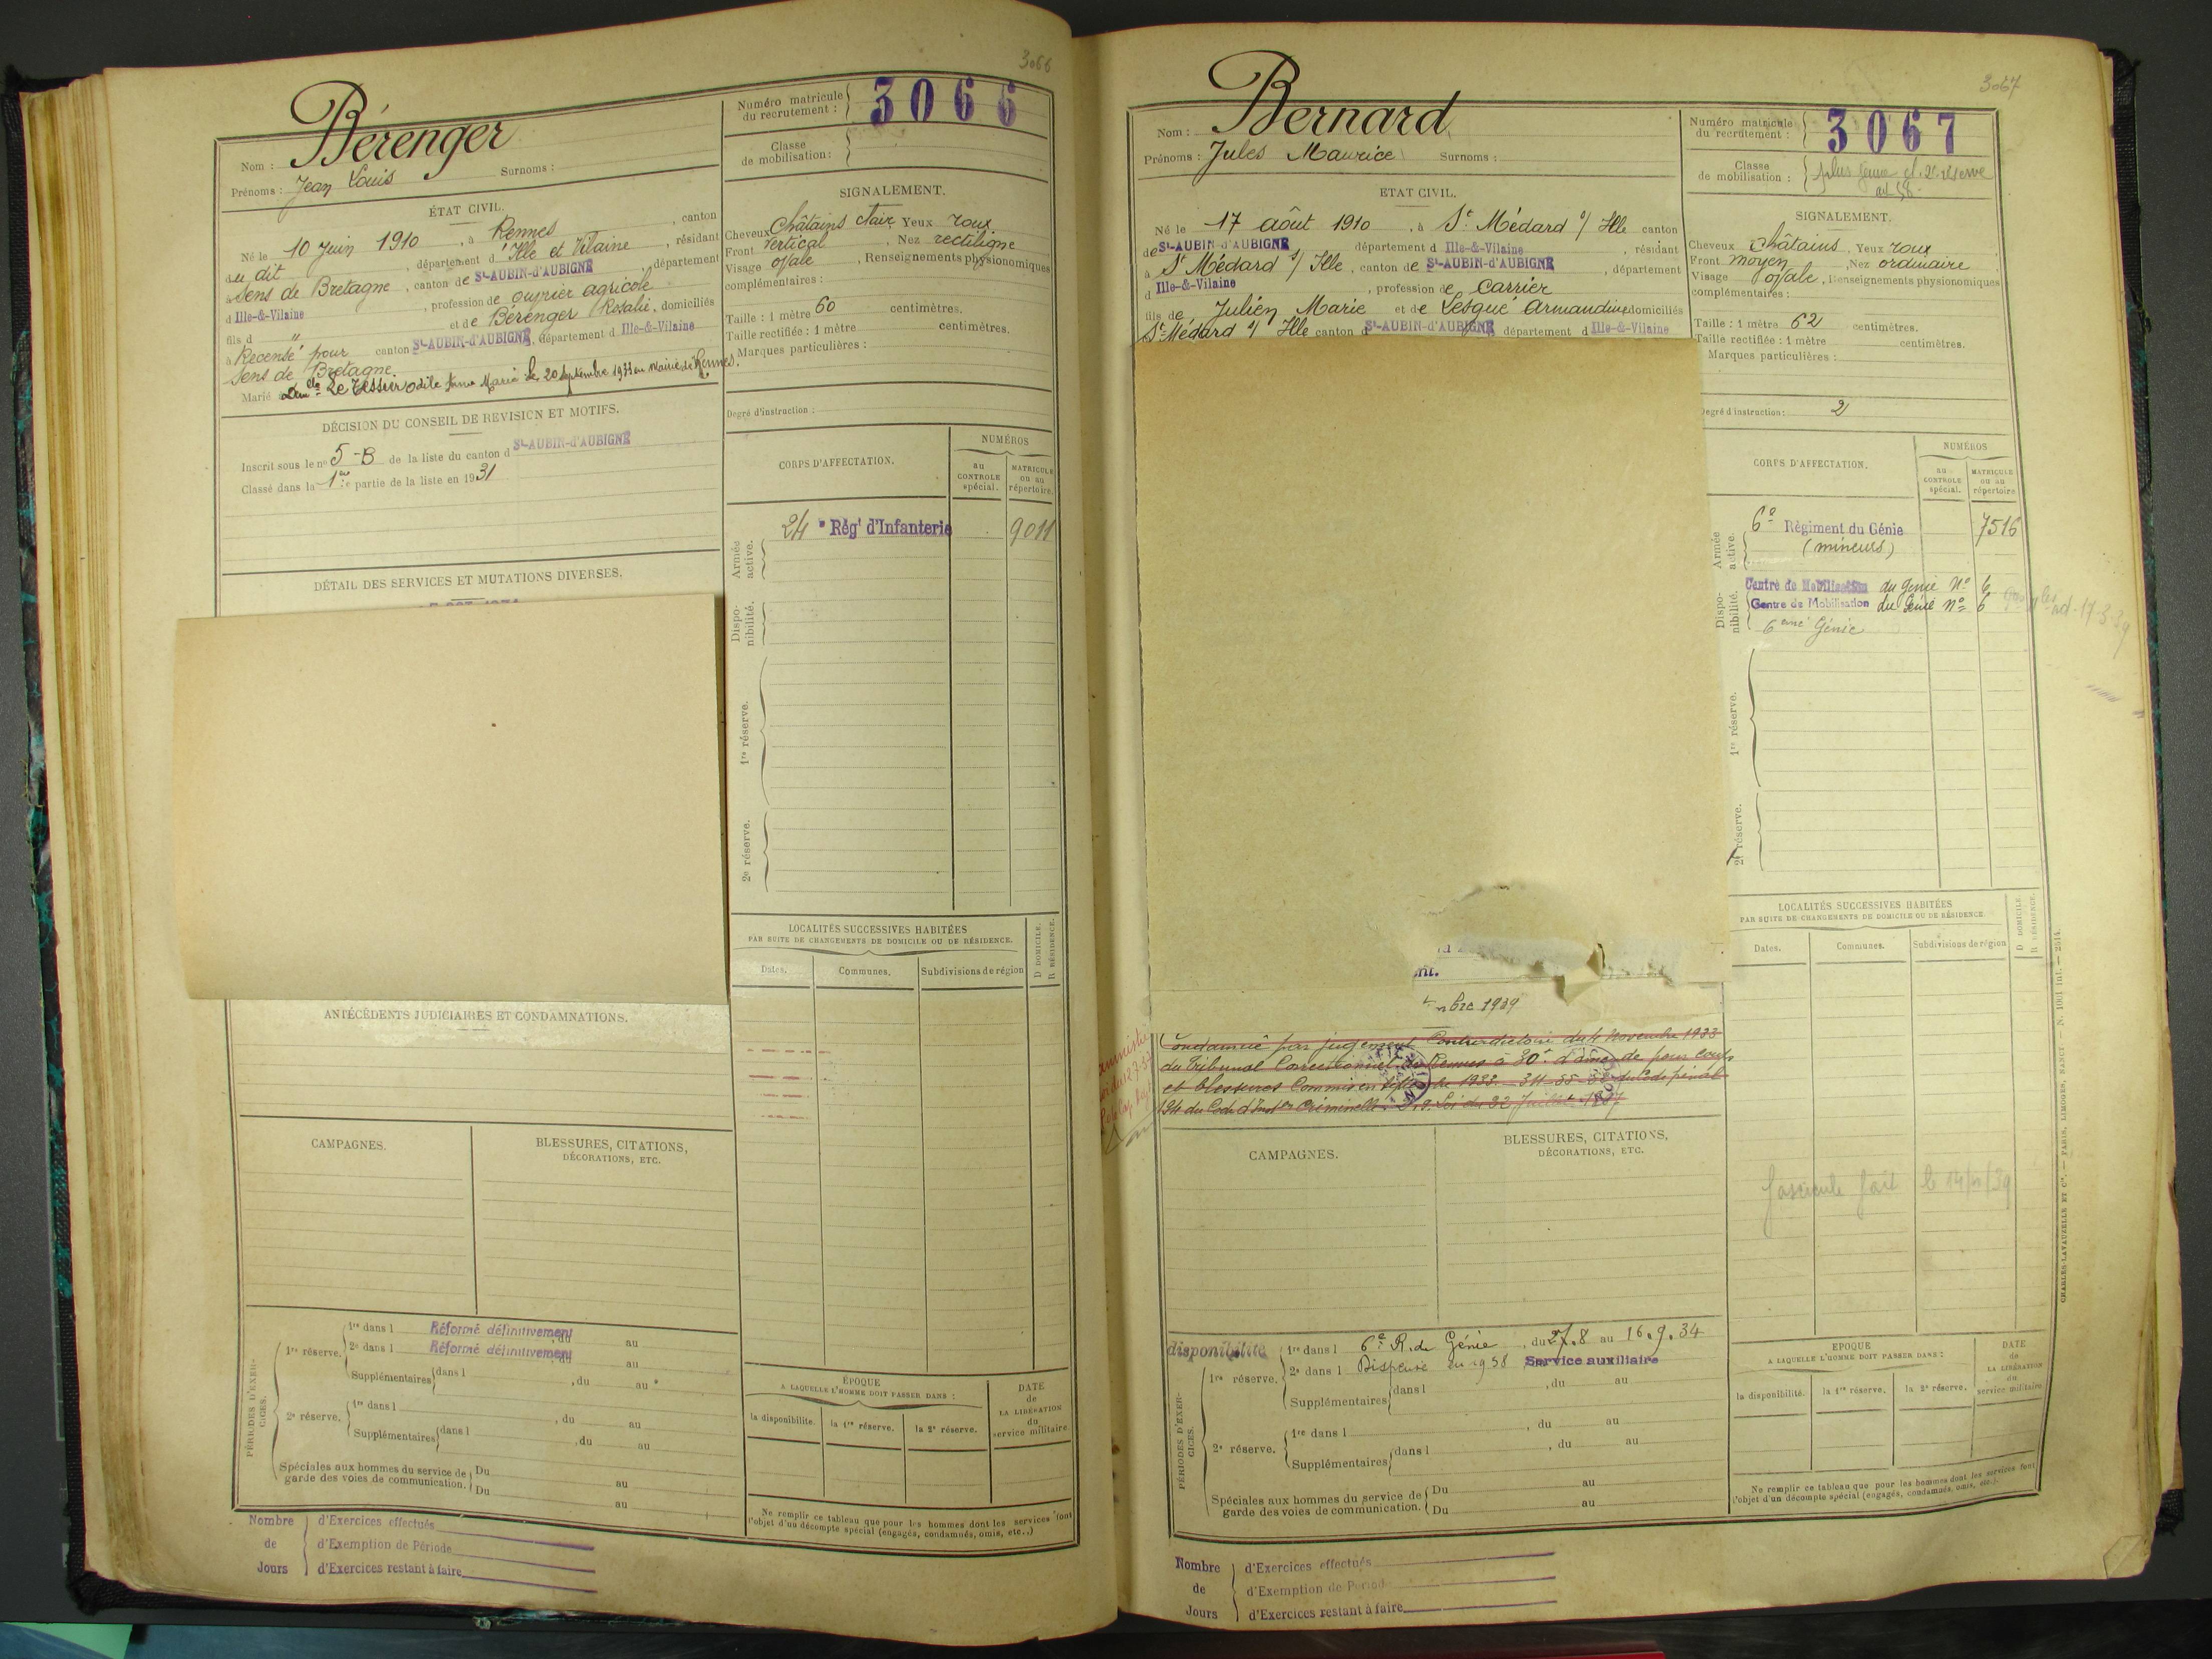 3066
Nom : Bérenger
Prénoms : Jean Louis Surnoms :
Numéro matricule du recrutement : 3066
Classe de mobilisation :
ÉTAT CIVIL.
Né le 10 Juin 1910, à Rennes, canton
du dit, département d'Ille et Vilaine, résidant
à Sens de Bretagne, canton de St-AUBIN-d'AUBIGNÉ, département
d Ille-&-Vilaine, profession de ouvrier agricole
fils d " et de Bérenger Rosalie, domiciliés
à Recensé pour canton St-AUBIN-d'AUBIGNÉ, département d Ille-&-Vilaine
Sens de Bretagne.
Marié à Le Tessier Odile Anna Maria le 20 Septembre 1933 en Mairie de Rennes.
SIGNALEMENT.
Cheveux Châtains clair Yeux roux
Front vertical, Nez rectiligne
Visage ovale, Renseignements physionomiques
complémentaires :
Taille : 1 mètre 60 centimètres.
Taille rectifiée : 1 mètre centimètres.
Marques particulières :
Degré d'instruction :
DÉCISION DU CONSEIL DE REVISION ET MOTIFS.
Inscrit sous le no 5-B de la liste du canton d St-AUBIN-d'AUBIGNÉ
Classé dans la 1re partie de la liste en 1931
DÉTAIL DES SERVICES ET MUTATIONS DIVERSES.
CORPS D'AFFECTATION.
NUMÉROS
au CONTROLE spécial.
MATRICULE ou au répertoire.
Armée active.
24e Régt d'Infanterie 9011
Disponibilité.
1re réserve.
2e réserve.
LOCALITÉS SUCCESSIVES HABITÉES
PAR SUITE DE CHANGEMENTS DE DOMICILE OU DE RÉSIDENCE.
D DOMICILE.
R RÉSIDENCE.
Dates. Communes. Subdivisions de région
ANTÉCÉDENTS JUDICIAIRES ET CONDAMNATIONS.
CAMPAGNES.
BLESSURES, CITATIONS,
DÉCORATIONS, ETC.
PÉRIODES D'EXERCICES.
1re réserve. 1re dans l Réformé définitivement, du au
2e dans l Réformé définitivement, du au
Supplémentaires dans l , du au
2e réserve. 1re dans l , du au
Supplémentaires dans l , du au
Spéciales aux hommes du service de garde des voies de communication. Du au
Du au
ÉPOQUE
A LAQUELLE L'HOMME DOIT PASSER DANS :
la disponibilité. la 1re réserve. la 2e réserve.
DATE de LA LIBÉRATION du service militaire.
Ne remplir ce tableau que pour les hommes dont les services font
l'objet d'un décompte spécial (engagés, condamnés, omis, etc..)
Nombre de Jours
d'Exercices effectués
d'Exemption de Période
d'Exercices restant à faire
3067
Nom : Bernard
Prénoms : Jules Maurice Surnoms :
Numéro matricule du recrutement : 3067
Classe de mobilisation : plus jeune cl. 2e réserve
ETAT CIVIL.
Né le 17 août 1910, à St Médard s/ Ille canton
de St-AUBIN-d'AUBIGNÉ département d Ille-&-Vilaine, résidant
à St Médard s/ Ille, canton de St-AUBIN-d'AUBIGNÉ, département
d Ille-&-Vilaine, profession de carrier
fils de Julien Marie et de Lesqué Armandine domiciliés
St-Médard s/ Ille canton d St-AUBIN-d'AUBIGNÉ département d Ille-&-Vilaine
SIGNALEMENT.
Cheveux châtains, Yeux roux
Front moyen, Nez ordinaire
Visage ovale, Renseignements physionomiques
complémentaires :
Taille : 1 mètre 62 centimètres.
Taille rectifiée : 1 mètre centimètres.
Marques particulières :
Degré d'instruction : 2
CORPS D'AFFECTATION.
NUMÉROS
au CONTROLE spécial.
MATRICULE ou au répertoire.
Armée active.
6e Régiment du Génie 7516
(mineurs)
Disponibilité.
Centre de Mobilisation du Génie No 6
Centre de Mobilisation du Génie No 6
17-3-39
6eme Génie
1re réserve.
2e réserve.
nt.
mbre 1939
Condamné par jugement Contradictoire du 4 Novembre 1933
du Tribunal Correctionnel de Rennes à 30f d'amende pour coups
et blessures Commis en Septembre 1933. 311-55-52 du Code pénal
194 du Code d'Inston Criminelle. Loi du 22 Juillet 1867
amnistié
LOCALITÉS SUCCESSIVES HABITÉES
PAR SUITE DE CHANGEMENTS DE DOMICILE OU DE RÉSIDENCE.
D DOMICILE.
R RÉSIDENCE.
Dates. Communes. Subdivisions de région
fascicule fait le
CAMPAGNES.
BLESSURES, CITATIONS,
DÉCORATIONS, ETC.
PÉRIODES D'EXERCICES.
disponibilité
1re réserve. 1re dans l 6e R. du Génie, du 27.8 au 16.9.34
2e dans l Dispensé en 1938 Service auxiliaire
Supplémentaires dans l , du au
2e réserve. 1re dans l , du au
Supplémentaires dans l , du au
Spéciales aux hommes du service de garde des voies de communication. Du au
Du au
EPOQUE
A LAQUELLE L'HOMME DOIT PASSER DANS :
la disponibilité. la 1re réserve. la 2e réserve.
DATE de LA LIBÉRATION du service militaire
Ne remplir ce tableau que pour les hommes dont les services font
l'objet d'un décompte spécial (engagés, condamnés, omis, etc.).
Nombre de Jours
d'Exercices effectués
d'Exemption de Période
d'Exercices restant à faire
CHARLES-LAVAUZELLE ET Cie. — PARIS, LIMOGES, NANCY